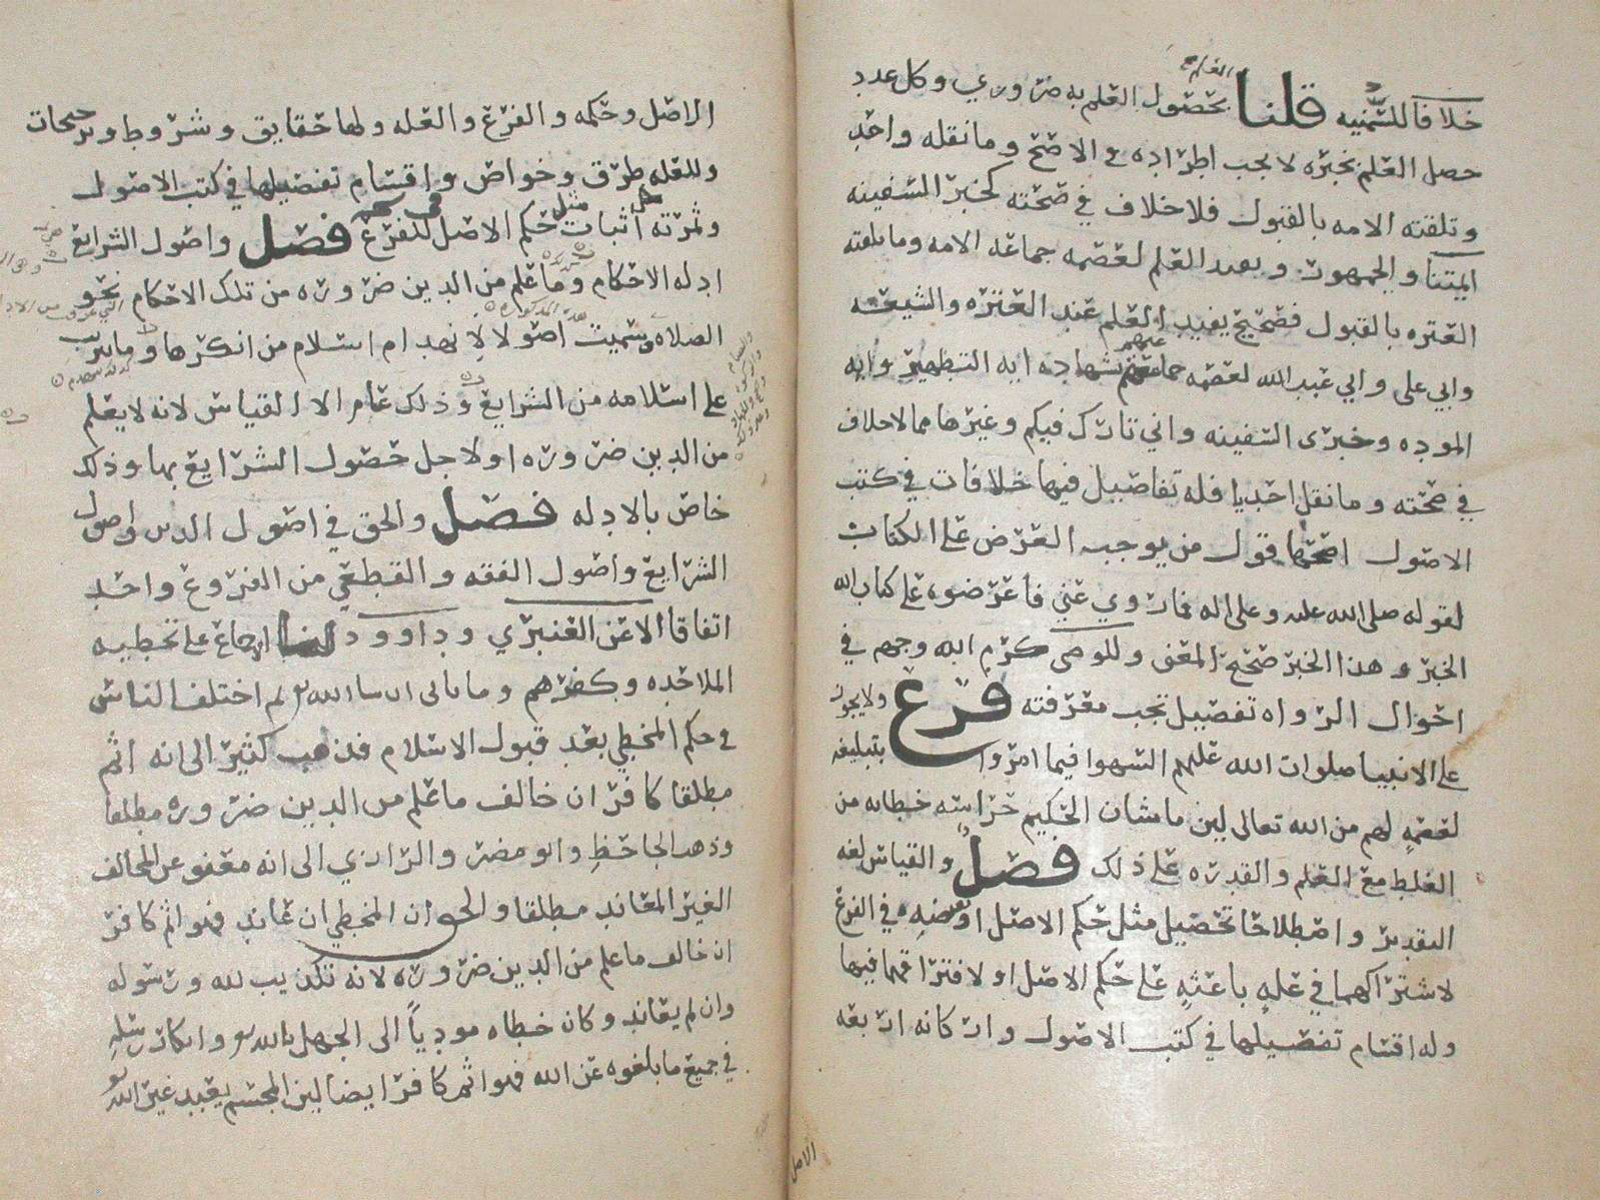 خلافا للسمنيه قلنا بحصول العلم به ضروري وكل عدد
حصل العلم بخبره لا يجب اطراده في الاصح وما نقله واحد
وتلقته الامه بالقبول فلا خلاف في صحته كخبر السفينه
ائمتنا والجمهور ويفيد العلم لعصمه جماعه الامه وما تلقته
العتره بالقبول فصحيح يفيد العلم عند العتره والشيعه
وابي علي وابي عبد الله لعصمه جماعتهم بشهاده ايه التطهير وايه
الموده وخبري السفينه واني تارك فيكم وغيرها مما لا خلاف
في صحته وما نقل احديا فله تفاصيل فيها خلافات في كتب
الاصول اصحها قول من يوجب العرض على الكتاب
لقوله صلى الله عليه وعلى اله فما روي عني فاعرضوه على كتاب الله
الخبر وهذا الخبر صحيح المعنى وللوصي كرم الله وجهه في
احوال الرواه تفصيل تجب معرفته فرع ولا يجوز
على الانبيا صلوات الله عليهم السهو فيما امروا بتبليغه
لعصمه لهم من الله تعالى لان ما شان الحكيم حراسه خطابه من
الغلط مع العلم والقدره على ذلك فصل والقياس لغه
التقدير واصطلاحا تحصيل مثل حكم الاصل او نقيضه في الفرع
لاشتراكهما في عله باعثه على حكم الاصل او لافتراقهما فيها
وله اقسام تفصيلها في كتب الاصول واركانه اربعه
الاصل
الاصل وحكمه والفرع والعله ولها حقايق وشروط وترجيحات
وللعله طرق وخواص واقسام تفصيلها في كتب الاصول
وثمرته اثبات مثل حكم الاصل للفرع فصل واصول الشرايع
ادله الاحكام وما علم من الدين ضروره من تلك الاحكام نحو
الصلاه وسميت اصولا لانهدام اسلام من انكرها وما يترتب
على اسلامه من الشرايع وذلك عام الا القياس لانه لا يعلم
من الدين ضروره او لاجل حصول الشرايع بها وذلك
خاص بالادله فصل والحق في اصول الدين واصول
الشرايع واصول الفقه والقطعي من الفروع واحد
اتفاقا الا عن العنبري وداوود لنا اجماع على تخطيه
الملاحده وكفرهم وما ياتي ان شا الله ثم اختلف الناس
في حكم المخطي بعد قبول الاسلام فذهب كثير الى انه اثم
مطلقا كافر ان خالف ما علم من الدين ضروره مطلقا
وذهب الجاحظ وابو مضر والرازي الى انه معفو عن المخالف
الغير المعاند مطلقا والحق ان المخطي ان عاند فهو اثم كافر
ان خالف ما علم من الدين ضروره لانه تكذيب لله ورسوله
وان لم يعاند وكان خطاه موديا الى الجهل بالله او انكار رسله
في جميع ما بلغوه عن الله فهو اثم كافر ايضا لان المجسم يعبد غير الله